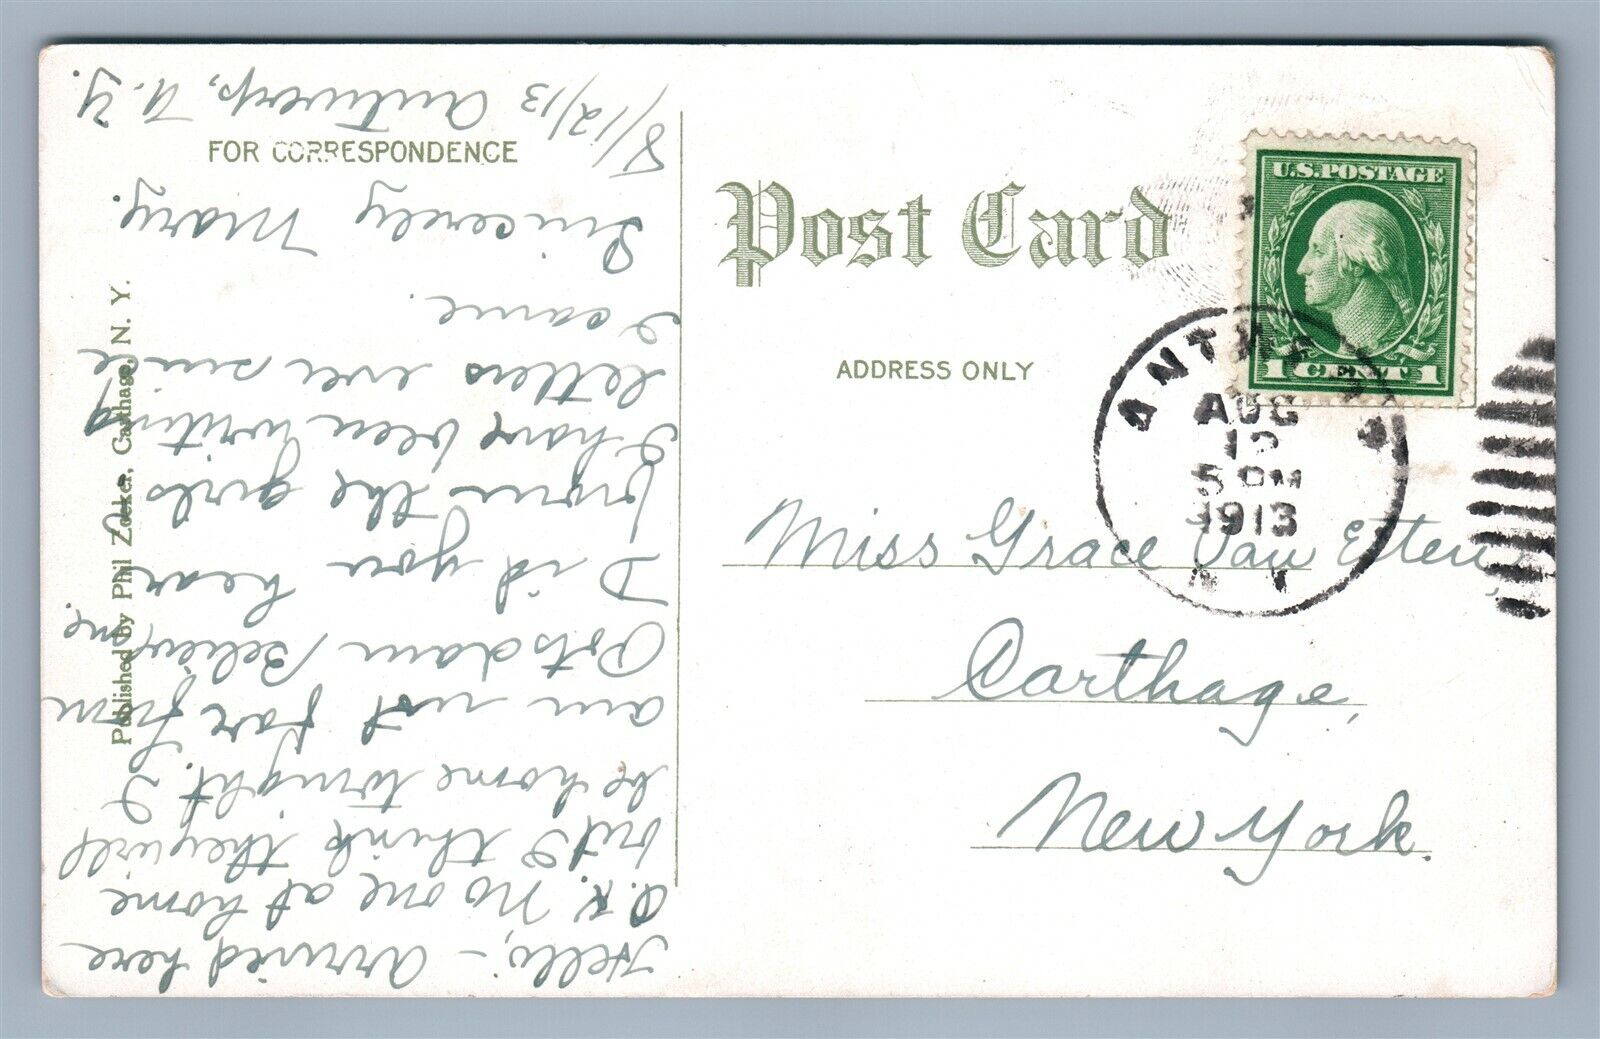 FOR CORRESPONDENCE
Post Card
ADDRESS ONLY
U.S.POSTAGE
1 CENT 1
ANTWERP
AUG
12
5 PM
1913
N Y
Miss Grace Van Etten,
Carthage,
New York.
Published by Phil Zecker, Carthage, N. Y.
Hello, – Arrived here
O.K. No one at home
but I think they will
be home tonight. I
am not far from
Potsdam, Believe me.
Did you hear
from the girls
I have been writing
letters ever since
I came.
Sincerely Mary.
8/12/13 Antwerp, N.Y.